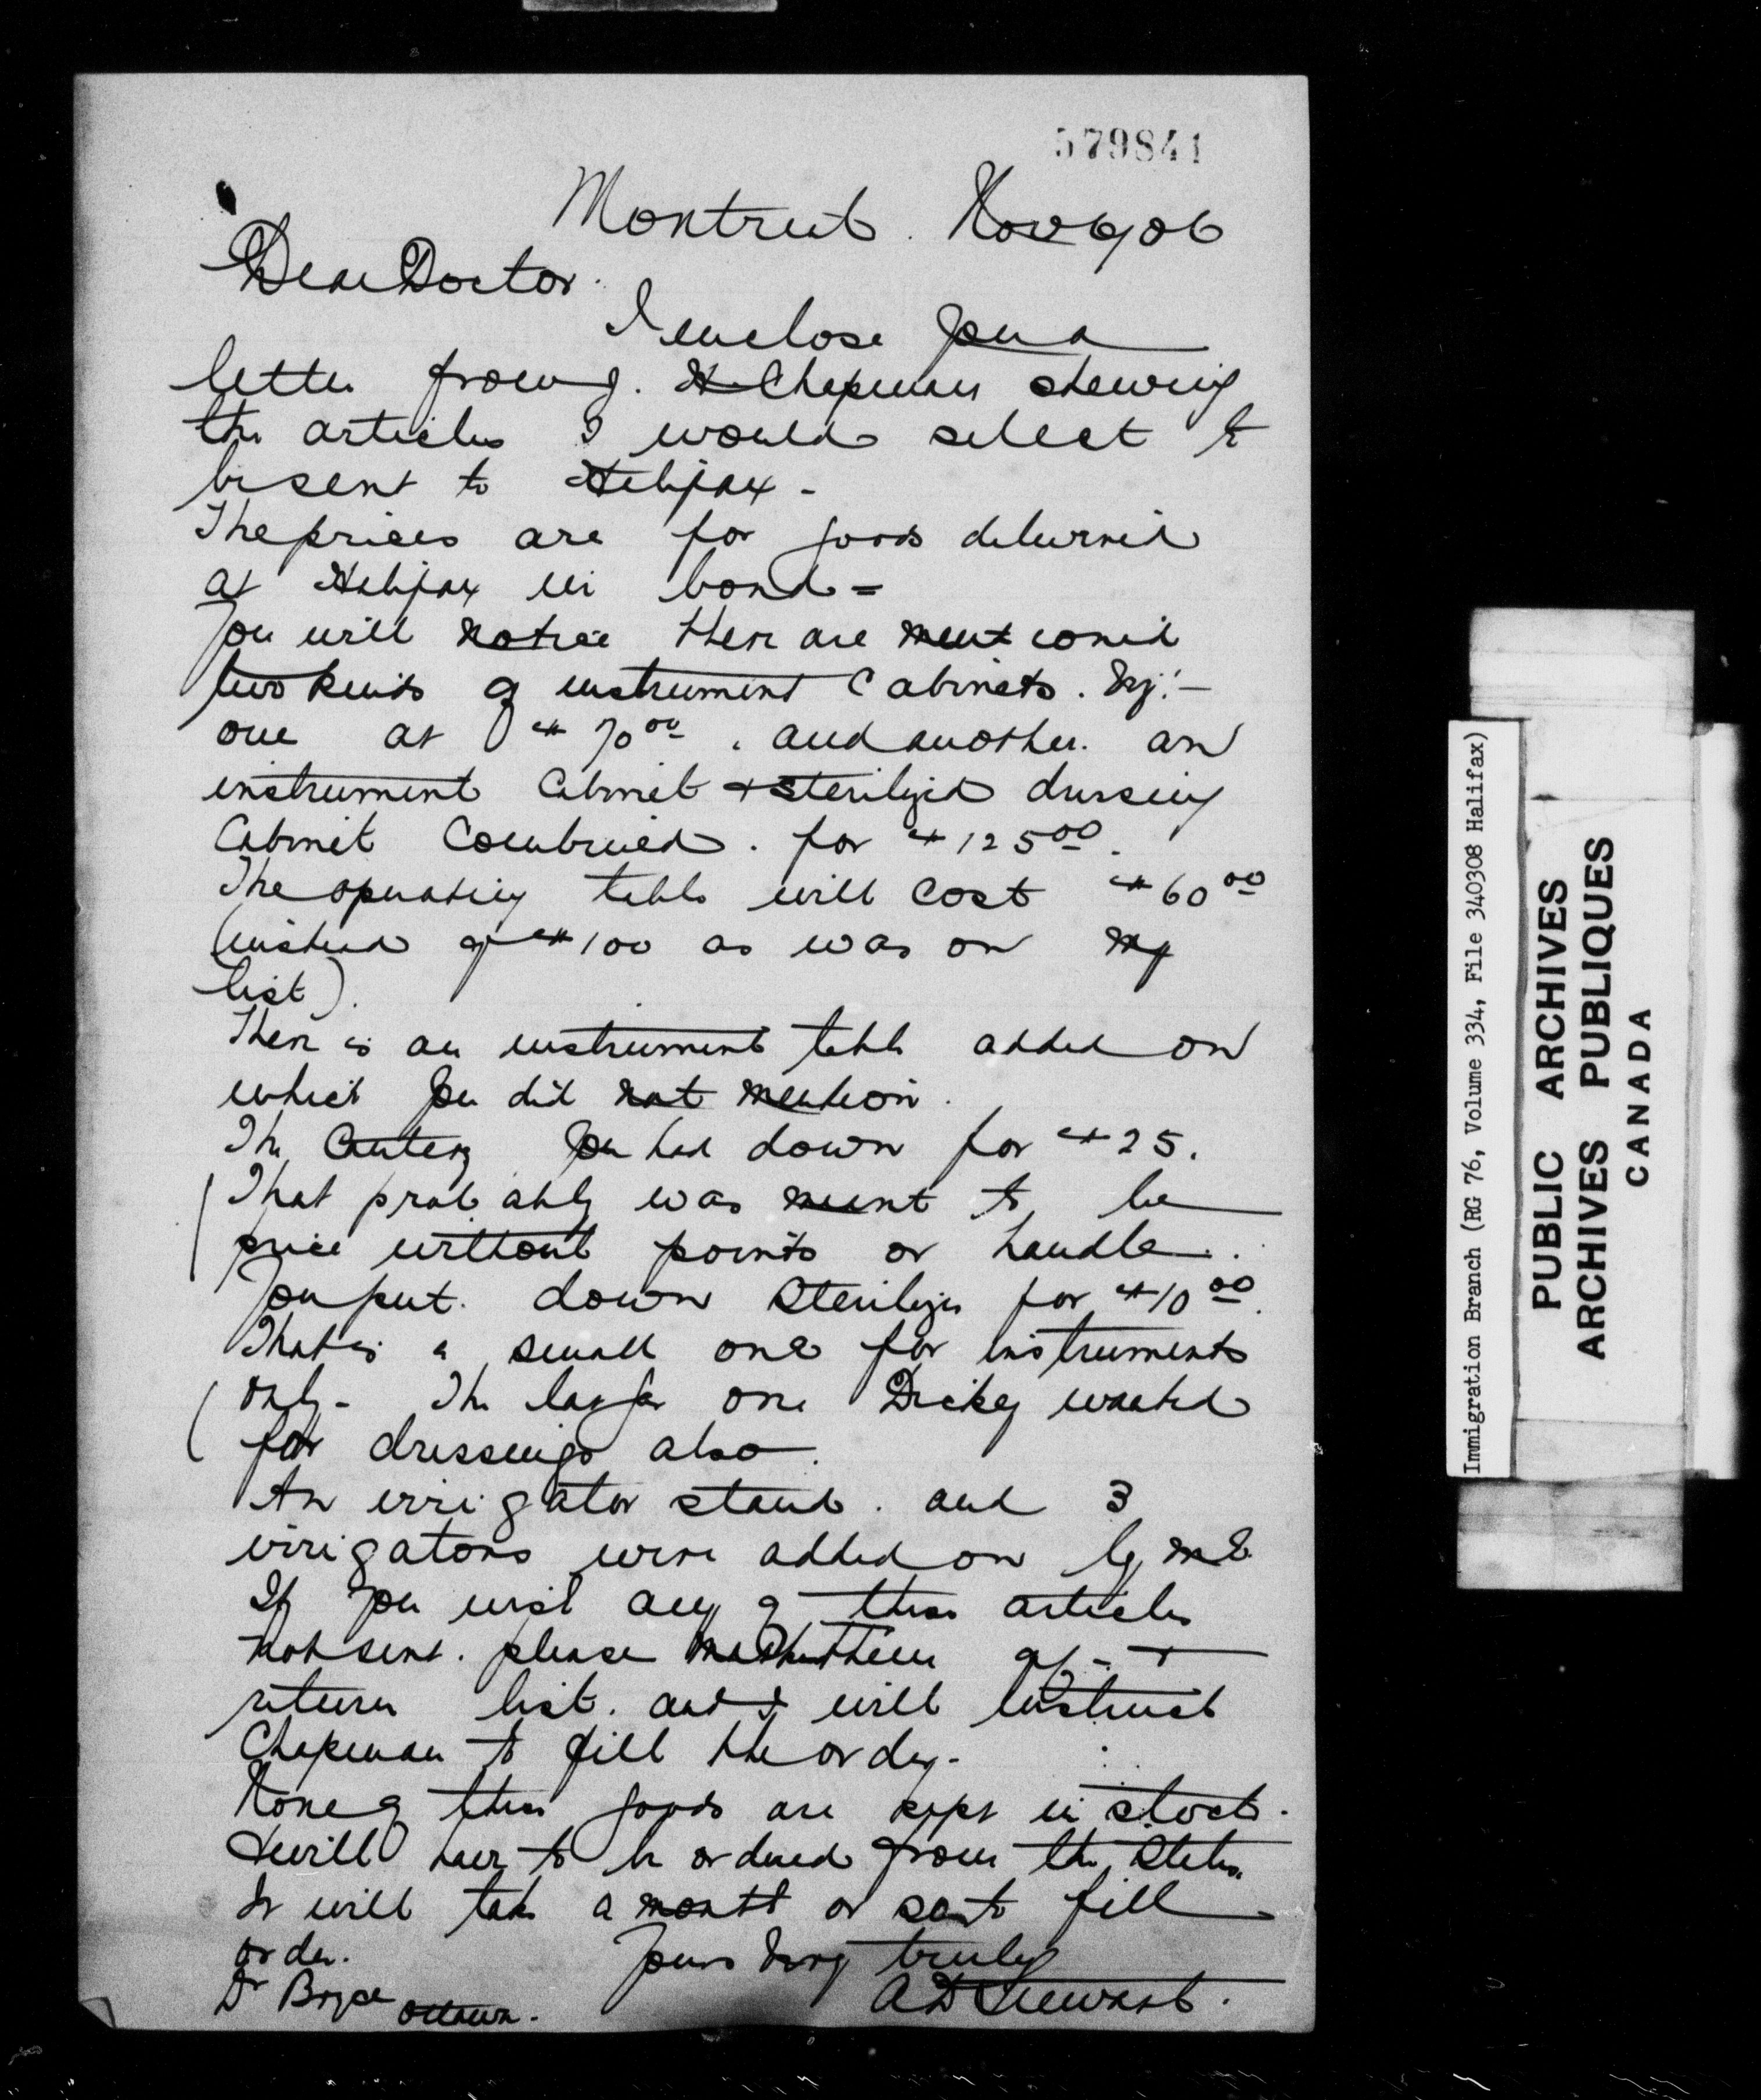 579841
Montreal. Nov 6/06
Dear Doctor.
I enclose you a
letter from J. H. Chapman shewing
the articles I would select to
be sent to Halifax -
The prices are for goods delivered
at Halifax in bond =
You will notice there are mentioned
two kinds of instrument Cabinets.
one at $70.00, and another. an
instrument Cabinet + sterilized dressing
Cabinet Combined. for $125.00.
The operating table will cost $60.00
(instead of $100 as was on my
list).
There is an instrument table added on
which you did not mention.
The Cautery you had down for $25.
That probably was meant to be
price without points or handle.
You put down Sterilizer for $10.00.
That is a small one for instruments
only - The larger one Dickey wanted
for dressings also.
An irrigator stand. and 3
irrigators were added on by me
If you wish any of these articles
not sent. please mark them off - +
return list. and I will instruct
Chapman to fill the order -
None of these goods are kept in stock.
+ will have to be ordered from the States.
It will take a month or so to fill
order. Yours very truly
Dr Bryce Ottawa. A D Stewart.
Immigration Branch (RG 76, Volume 334, File 340308 Halifax)
PUBLIC ARCHIVES
ARCHIVES PUBLIQUES
CANADA